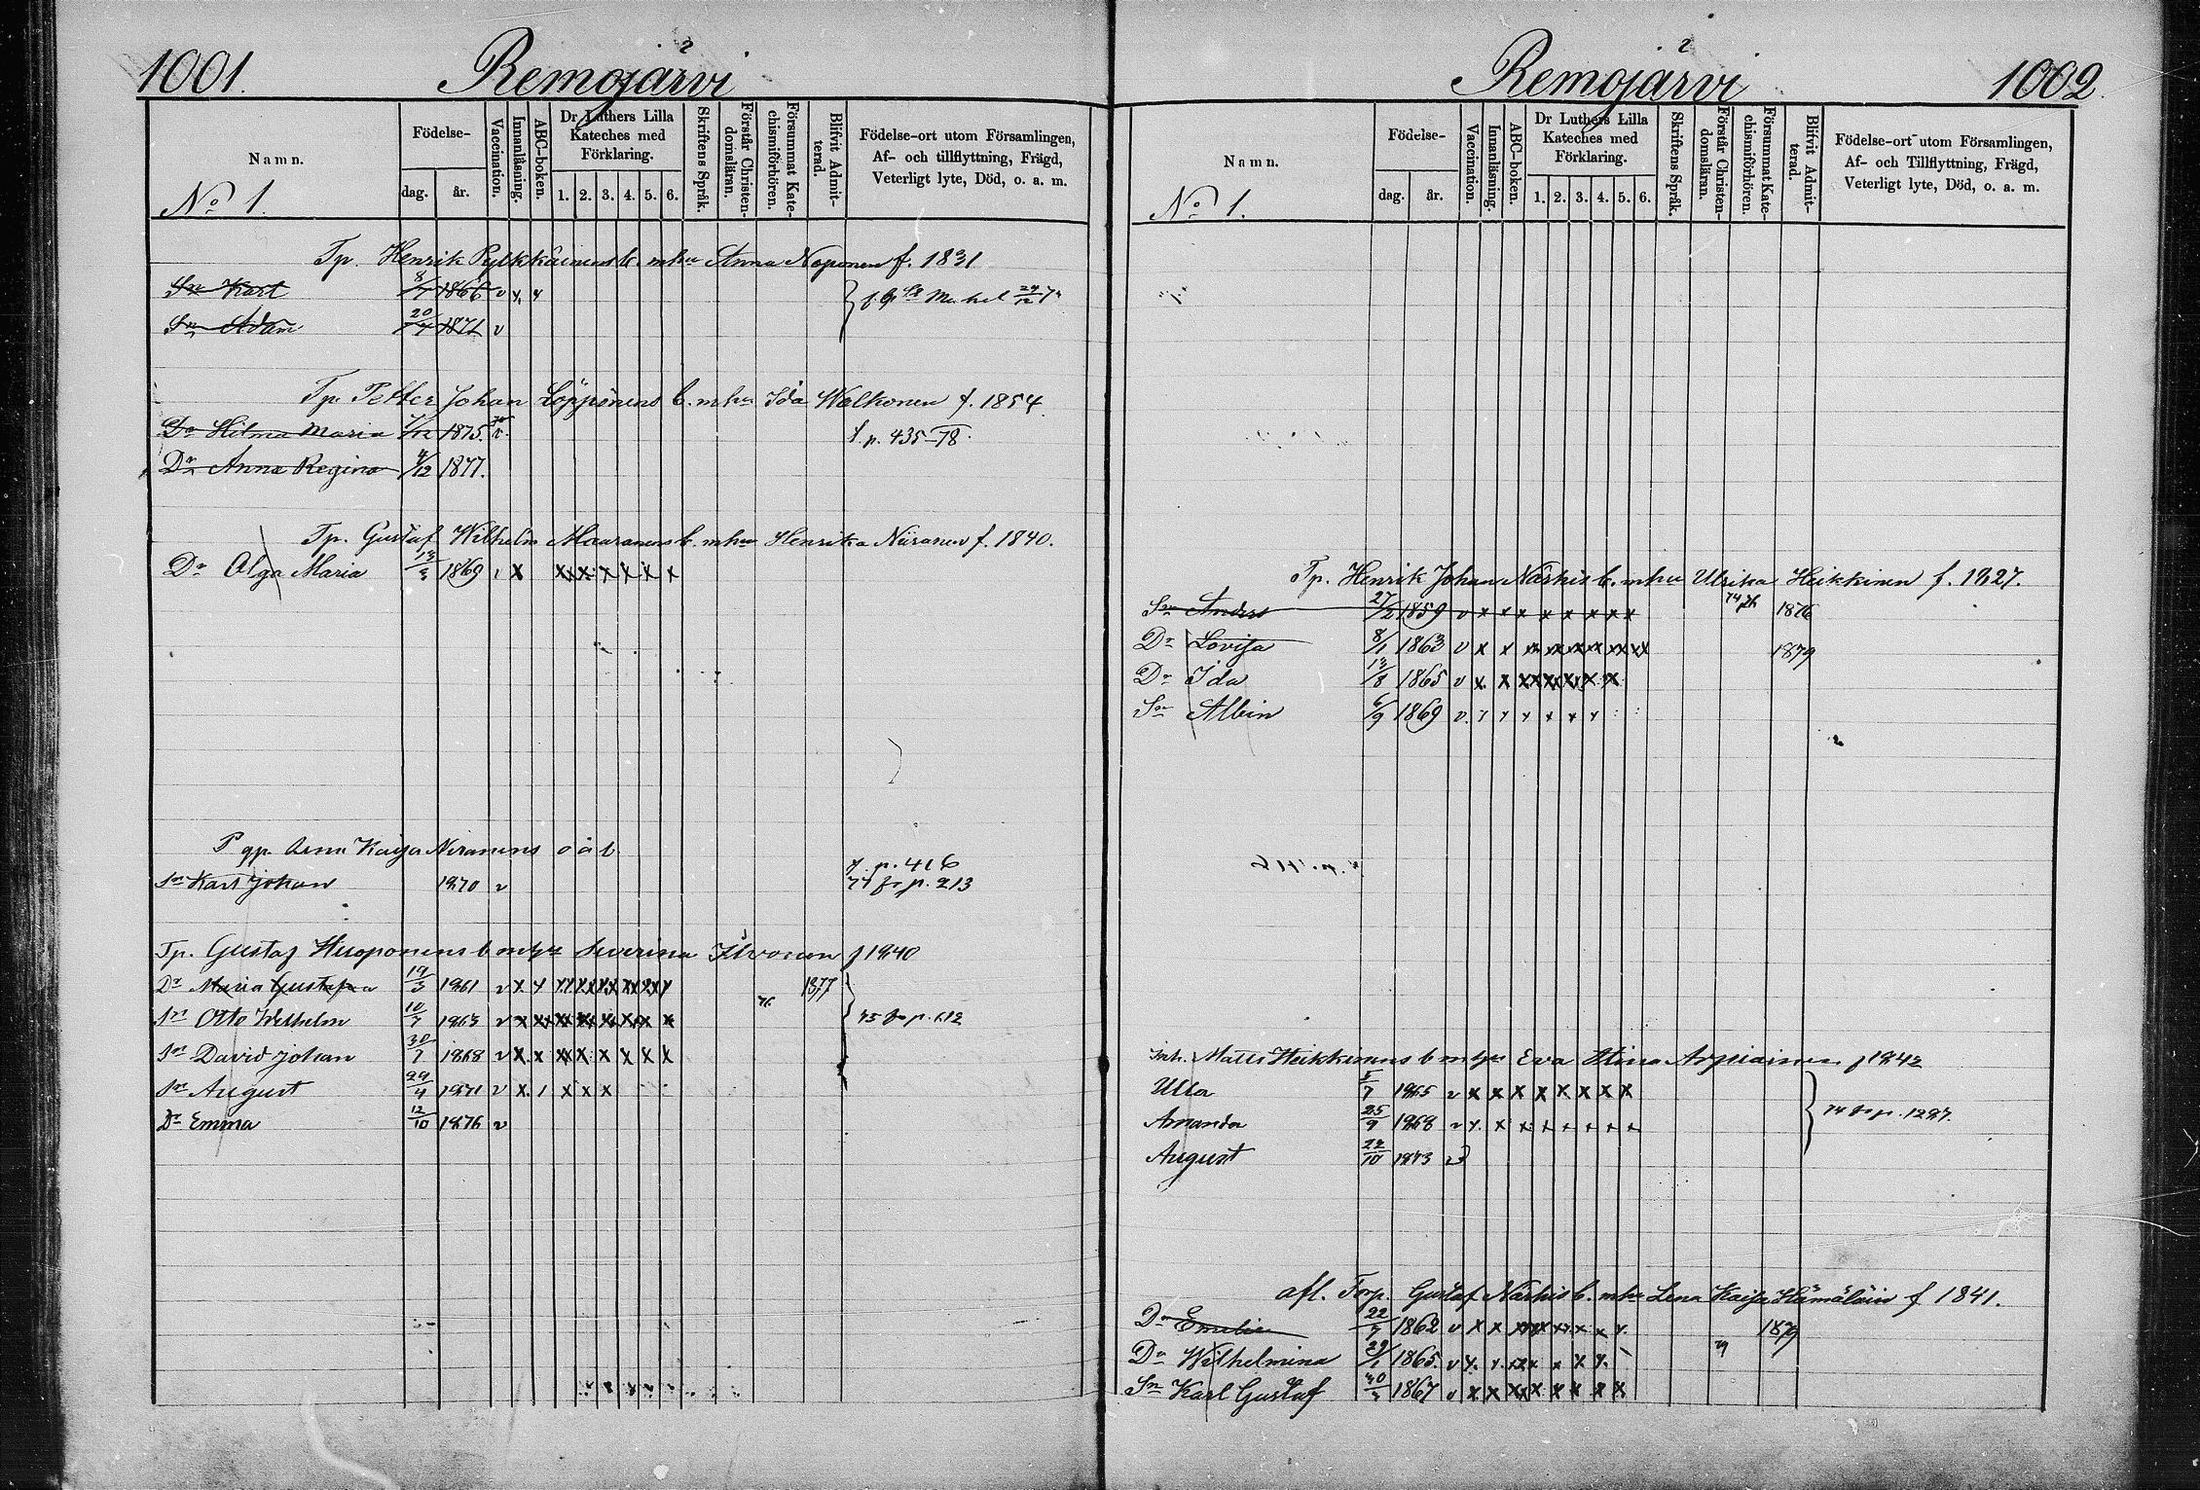 1001. Remojärvi
Namn.
No 1.
Födelse-
dag. år.
Vaccination.
Innanläsning.
ABC-boken.
Dr Luthers Lilla Kateches med Förklaring.
1. 2. 3. 4. 5. 6.
Skriftens Språk.
Förstår Christen-domsläran.
Försummat Kate-chismiförhören.
Blifvit Admit-terad.
Födelse-ort utom Församlingen,
Af- och tillflyttning, Frägd,
Veterligt lyte, Död, o. a. m.
Tp. Henrik Pylkkänens b. m hu Anna Noponen f. 1831
Sn Karl 8/7 1866 v x x
Sn Adam 20/7 1871 v
Tp. Petter Johan Löppönens b. m hu Ida Walkonen f. 1854.
Dr Hilma Maria 1/12 1875. f. p. 435-78.
Dr Anna Regina 4/12 1877.
Tp. Gustaf Wilhelm Mauranens b. m hu Henrika Niiranen f. 1840.
Dr Olga Maria 13/3 1869 x x x x x x x
P gp. Anna Kaisa Niranens o ä b
p. 416
Sn Karl Johan 1870 v 77 fr p. 213
Tp. Gustaf Huoponens b m hu Severina Ilvonen f 1840
Dr Maria Gustafva 19/3 1861 v 1877
Sn Otto Wilhelm 10/7 1863 v 75 fr p. 612
Sn David Johan 30/7 1868 v x x xx x x x x x
Sn August 29/4 1871 v x 1 x x x
Dr Emma 12/10 1876 v
Remojärvi 1002.
Namn.
No 1.
Födelse-
dag. år.
Vaccination.
Innanläsning.
ABC-boken.
Dr Luthers Lilla Kateches med Förklaring.
1. 2. 3. 4. 5. 6.
Skriftens Språk.
Förstår Christen-domsläran.
Försummat Kate-chismiförhören.
Blifvit Admit-terad.
Födelse-ort utom Församlingen,
Af- och Tillflyttning, Frägd,
Veterligt lyte, Död, o. a. m.
Tp. Henrik Johan Närhis b. m hu Ulrika Heikkinen f. 1827.
Sn Anders 27/2 1859 v x x x x x x x x 1876
Dr Lovisa 8/1 1863 v x x 1879
Dr Ida 13/8 1865 v x x
Sn Albin 6/9 1869 v.
Inh. Matts Heikkinens b m hu Eva Stina Arpiainen f 1842
Ulla 5/7 1865 v x x x x x x x x
Amanda 25/9 1868 v 74 fr p. 1227.
August 22/10 1873 v
afl. Torp. Gustaf Närhis b. m hu Lena Kaisa Hämäläin f 1841.
Dr Emelie 22/7 1862 v x x 1879
Dr Wilhelmina 29/1 1865. v
Sn Karl Gustaf 30/3 1867 v x x xx x x x x x